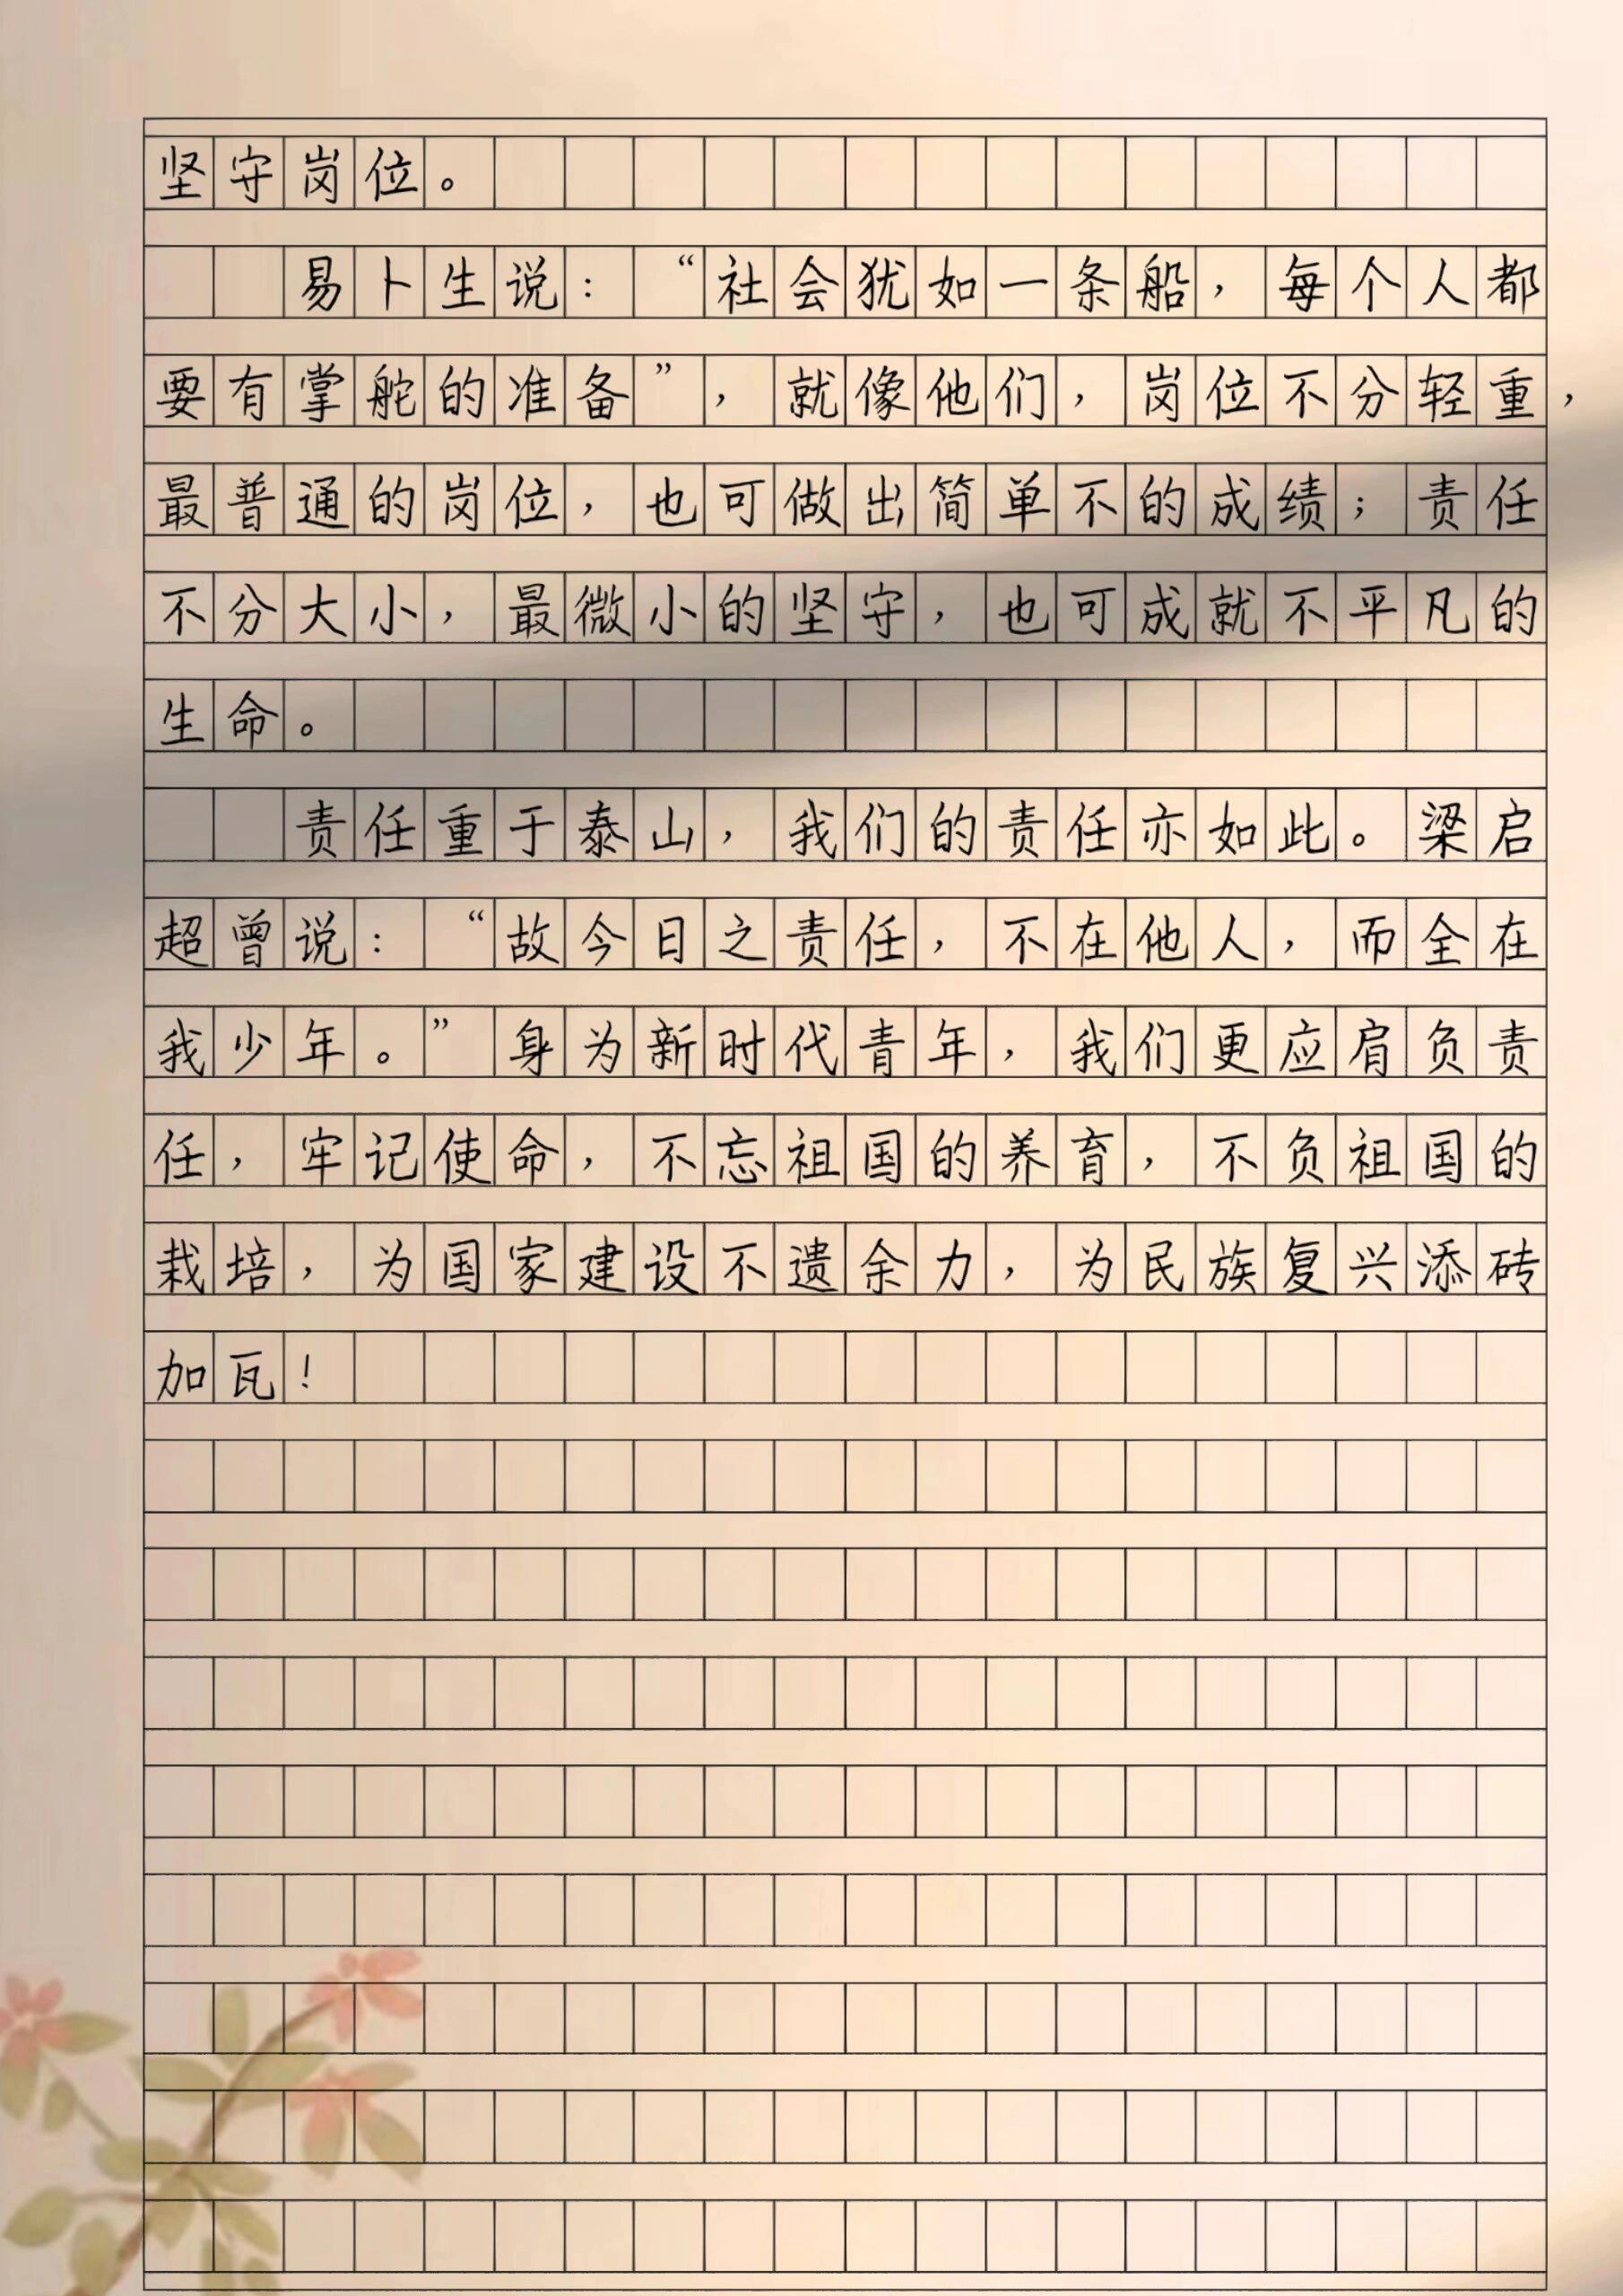 坚守岗位。
易卜生说：“社会犹如一条船，每个人都
要有掌舵的准备”，就像他们，岗位不分轻重，
最普通的岗位，也可做出简单不的成绩；责任
不分大小，最微小的坚守，也可成就不平凡的
生命。
责任重于泰山，我们的责任亦如此。梁启
超曾说：“故今日之责任，不在他人，而全在
我少年。”身为新时代青年，我们更应肩负责
任，牢记使命，不忘祖国的养育，不负祖国的
栽培，为国家建设不遗余力，为民族复兴添砖
加瓦！